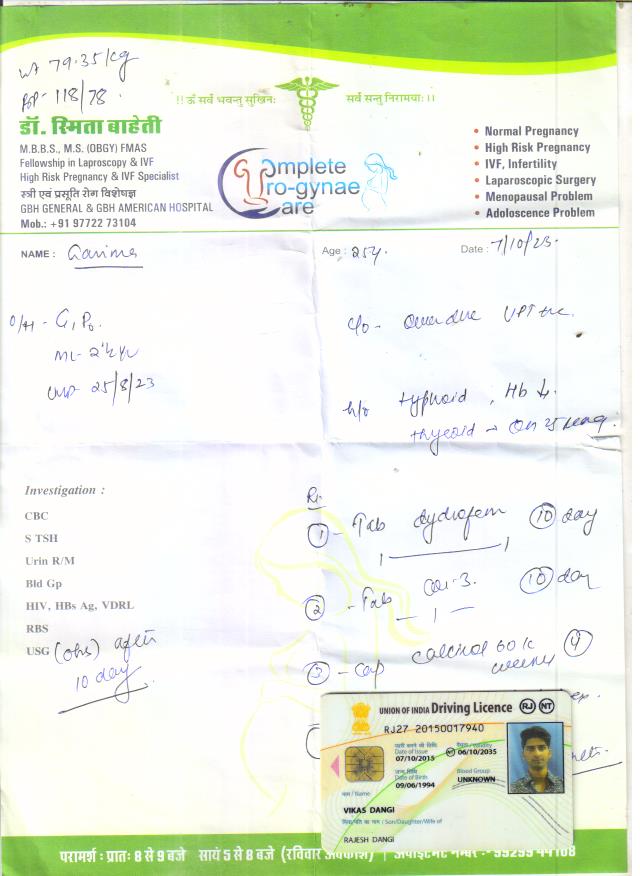 Wt 79.35 kg
BP- 118/78.
!! ॐ सर्व भवन्तु सुखिनः
सर्व सन्तु निरामयाः ।।
डॉ. स्मिता बाहेती
M.B.B.S., M.S. (OBGY) FMAS
Fellowship in Laproscopy & IVF
High Risk Pregnancy & IVF Specialist
स्त्री एवं प्रसूति रोग विशेषज्ञ
GBH GENERAL & GBH AMERICAN HOSPITAL
Mob.: +91 97722 73104
Complete
Pro-gynae
Care
• Normal Pregnancy
• High Risk Pregnancy
• IVF, Infertility
• Laparoscopic Surgery
• Menopausal Problem
• Adoloscence Problem
NAME : Garima
Age : 25y.
Date : 7/10/23.
O/H - G1 P0.
ML- 2½ yr
LMP 25/8/23
c/o- Overdue UPT +ve.
h/o typhoid , Hb ↓.
thyroid - On 25
Investigation :
CBC
S TSH
Urin R/M
Bld Gp
HIV, HBs Ag, VDRL
RBS
USG (obs) after
10 day
Rx
① - Tab dydrofem ⑩ day
② - Tab ⑩ day
③ - Cap calcirol 60 K ④
weekly
UNION OF INDIA Driving Licence RJ NT
RJ27 20150017940
जारी करने की तिथि
Date of Issue
07/10/2015
वैधता / Validity
NT 06/10/2035
जन्म तिथि
Date of Birth
09/06/1994
Blood Group
UNKNOWN
नाम / Name
VIKAS DANGI
पिता/पति का नाम / Son/Daughter/Wife of
RAJESH DANGI
परामर्श : प्रातः 8 से 9 बजे सायं 5 से 8 बजे (रविवार अवकाश) | अपॉइंटमेंट नम्बर :- 92995 44108